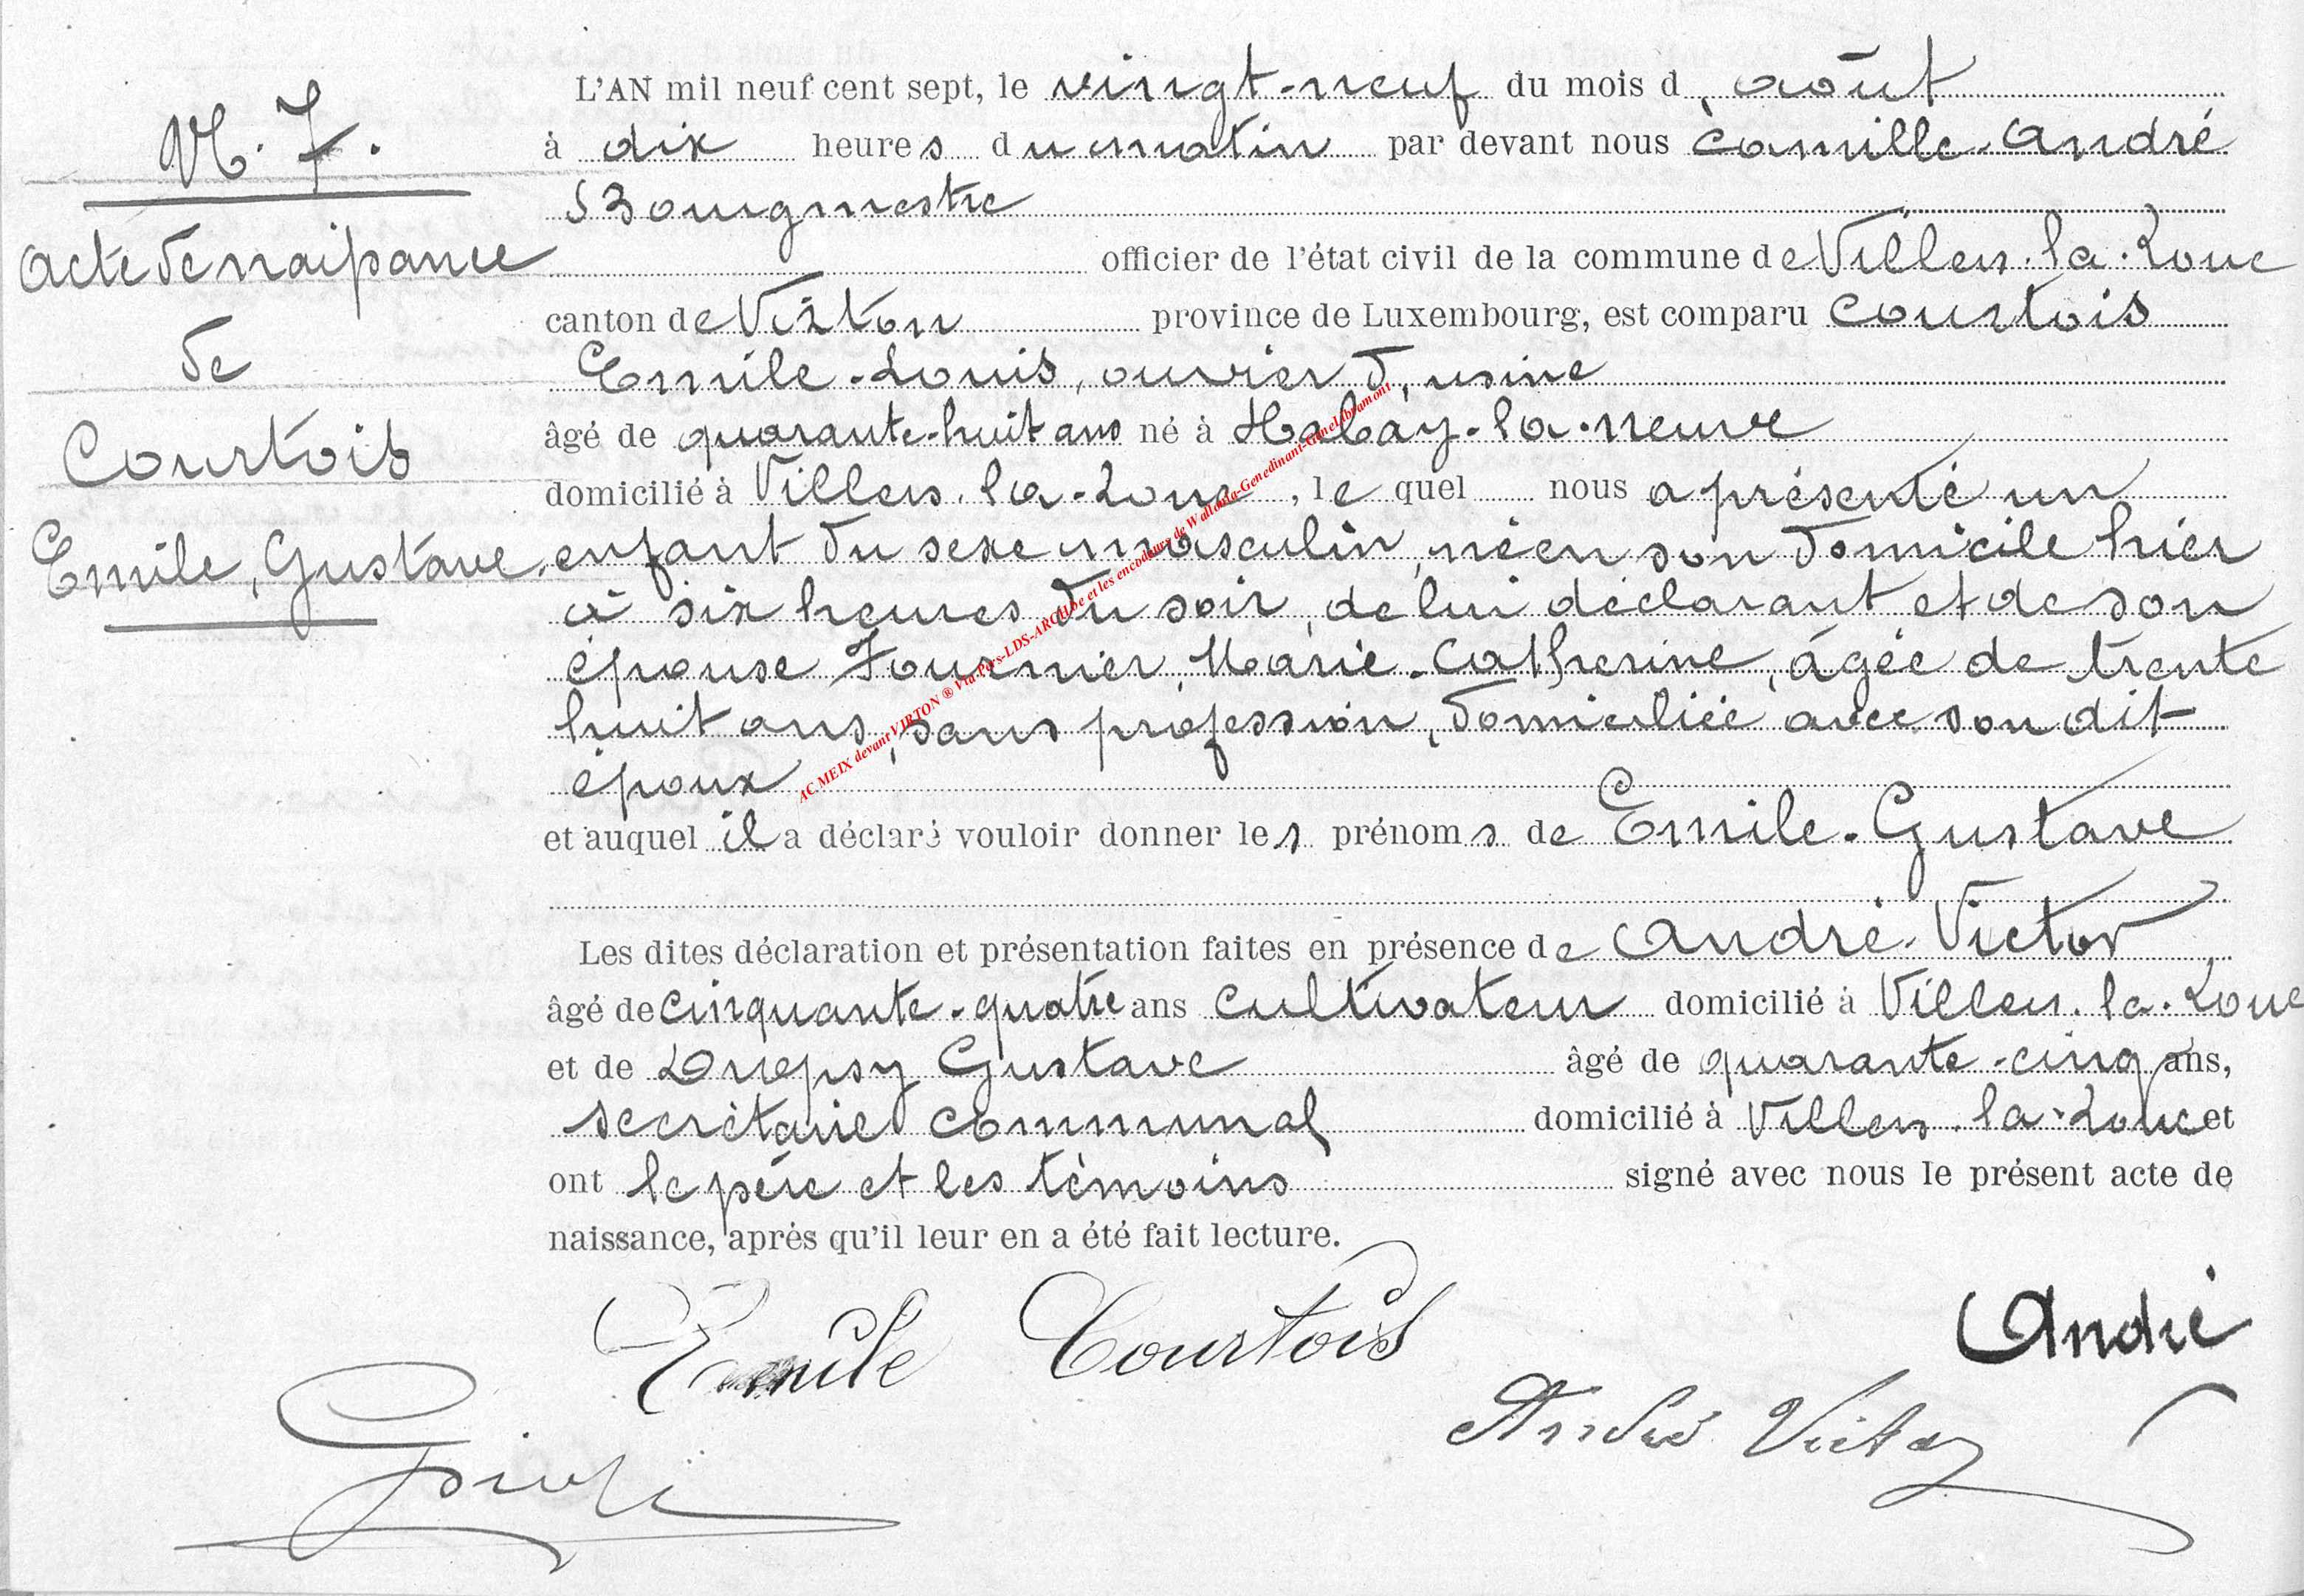 N. 7.
Acte de naissance
de
Courtois
Emile, Gustave
L'AN mil neuf cent sept, le vingt-neuf du mois d'août
à dix heures du matin par devant nous Camille André
Bourgmestre
officier de l'état civil de la commune de Villers-la-Loue
canton de Virton province de Luxembourg, est comparu Courtois
Emile-Louis, ouvrier d'usine
âgé de quarante-huit ans né à Habay-la-neuve
domicilié à Villers-la-Loue, le quel nous a présenté un
enfant du sexe masculin, né en son domicile hier
à six heures du soir, de lui déclarant et de son
épouse Fournier, Marie-Catherine, âgée de trente
huit ans, sans profession, domiciliée avec son dit
époux
et auquel il a déclaré vouloir donner les prénoms de Emile-Gustave
Les dites déclaration et présentation faites en présence de André Victor
âgé de cinquante-quatre ans cultivateur domicilié à Villers-la-Loue
et de Gustave âgé de quarante-cinq ans,
secrétaire communal domicilié à Villers-la-Loue et
ont le père et les témoins signé avec nous le présent acte de
naissance, après qu'il leur en a été fait lecture.
Emile Courtois
André
André Victor
AC MEIX devant VIRTON ® Via-Pers-LDS-ARCHBe et les encodeurs de Wallonia-Genedinant-Genelibramont